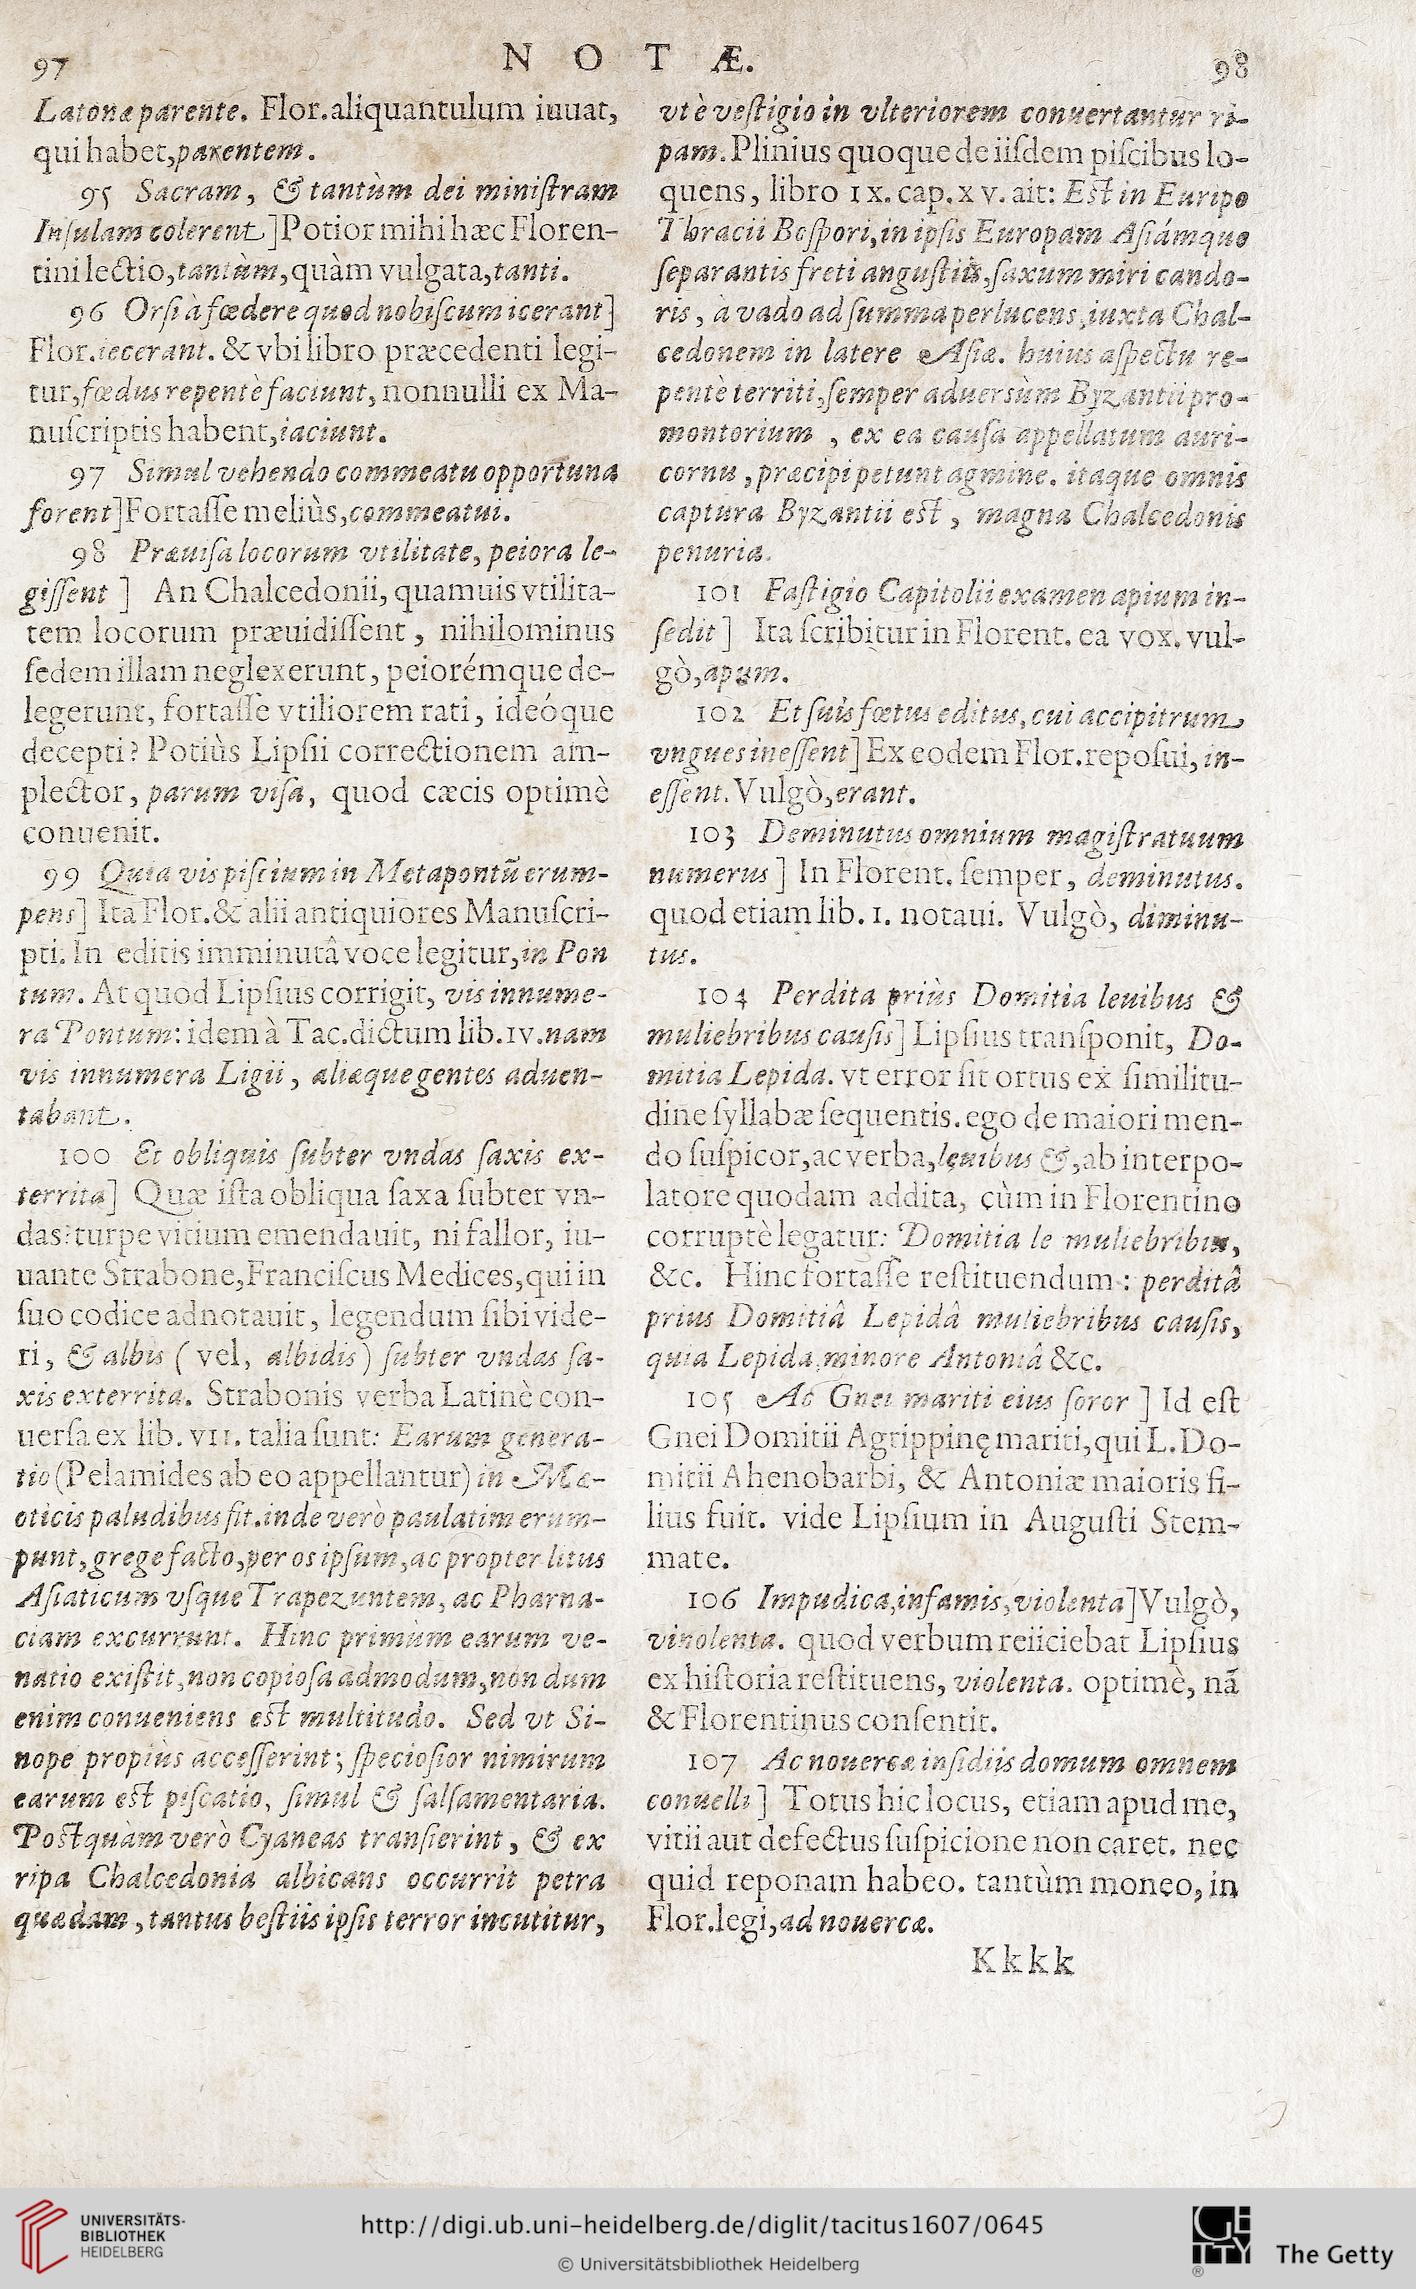 97
N O T Æ.
98
Latonæ parente. Flor. aliquantulum iuuat,
qui habet, parentem.
95 Sacram, & tantùm dei miniſtram
Inſulam colerent] Potior mihi hæc Floren-
tini lectio, tantùm, quàm vulgata, tanti.
96 Orſi à fœdere quod nobiſcum icerant]
Flor. iecerant. & vbi libro præcedenti legi-
tur, fœdus repentè faciunt, nonnulli ex Ma-
nuſcriptis habent, iaciunt.
97 Simul vehendo commeatu opportuna
forent] Fortaſſe meliùs, commeatui.
98 Præuiſa locorum vtilitate, peiora le-
giſſent ] An Chalcedonii, quamuis vtilita-
tem locorum præuidiſſent, nihilominus
ſedem illam neglexerunt, peiorémque de-
legerunt, fortaſſe vtiliorem rati, ideóque
decepti? Potiùs Lipſii correctionem am-
plector, parum viſa, quod cæcis optimè
conuenit.
99 Quia vis piſcium in Metapontũ erum-
pens] Ita Flor. & alii antiquiores Manuſcri-
pti. In editis imminutâ voce legitur, in Pon
tum. At quod Lipſius corrigit, vis innume-
ra Pontum: idem à Tac. dictum lib. IV. nam
vis innumera Ligii, aliæque gentes aduen-
tabant.
100 Et obliquis ſubter vndas ſaxis ex-
territa] Quæ iſta obliqua ſaxa ſubter vn-
das? turpe vitium emendauit, ni fallor, iu-
uante Strabone, Franciſcus Medices, qui in
ſuo codice adnotauit, legendum ſibi vide-
ri, & albis ( vel, albidis) ſubter vndas ſa-
xis exterrita. Strabonis verba Latinè con-
uerſa ex lib. VII. talia ſunt: Earum genera-
tio (Pelamides ab eo appellantur) in Mæ-
oticis paludibus fit. inde verò paulatim erum-
punt, grege facto, per os ipſum, ac propter litus
Aſiaticum vſque Trapezuntem, ac Pharna-
ciam excurrunt. Hinc primùm earum ve-
natio exiſtit, non copioſa admodum, non dum
enim conueniens eſt multitudo. Sed vt Si-
nope propiùs acceſſerint; ſpecioſior nimirum
earum eſt piſcatio, ſimul & ſalſamentaria.
Poſtquàm verò Cyaneas tranſierint, & ex
ripa Chalcedonia albicans occurrit petra
quædam, tantus beſtiis ipſis terror incutitur,
vt è veſtigio in vlteriorem conuertantur ri-
pam. Plinius quoque de iiſdem piſcibus lo-
quens, libro IX. cap. XV. ait: Eſt in Euripo
Thracii Boſpori, in ipſis Europam Aſiámque
ſeparantis freti anguſtiis, ſaxum miri cando-
ris, à vado ad ſumma perlucens, iuxta Chal-
cedonem in latere Aſiæ. huius aſpectu re-
pentè territi, ſemper aduersùm Byzantii pro-
montorium, ex ea cauſa appellatum auri-
cornu, præcipi petunt agmine. itaque omnis
captura Byzantii eſt, magna Chalcedonis
penuria.
101 Faſtigio Capitolii examen apium in-
ſedit ] Ita ſcribitur in Florent. ea vox. vul-
gò, apum.
102 Et ſuis fœtus editus, cui accipitrum
vngues ineſſent] Ex eodem Flor. repoſui, in-
eſſent. Vulgò, erant.
103 Deminutus omnium magiſtratuum
numerus ] In Florent. ſemper, deminutus.
quod etiam lib. I. notaui. Vulgò, diminu-
tus.
104 Perdita priùs Domitia leuibus &
muliebribus cauſis] Lipſius tranſponit, Do-
mitia Lepida. vt error ſit ortus ex ſimilitu-
dine ſyllabæ ſequentis. ego de maiori men-
do ſuſpicor, ac verba, leuibus &, ab interpo-
latore quodam addita, cùm in Florentino
corruptè legatur: Domitia le muliebribus,
&c. Hinc fortaſſe reſtituendum: perditâ
prius Domitiâ Lepidâ muliebribus cauſis,
quia Lepida, minore Antoniâ &c.
105 Ac Gnei mariti eius ſoror ] Id eſt
Gnei Domitii Agrippinę mariti, qui L. Do-
mitii Ahenobarbi, & Antoniæ maioris fi-
lius fuit. vide Lipſium in Auguſti Stem-
mate.
106 Impudica, infamis, violenta] Vulgò,
vinolenta. quod verbum reiiciebat Lipſius
ex hiſtoria reſtituens, violenta. optimè, nã
& Florentinus conſentit.
107 Ac nouercæ inſidiis domum omnem
conuelli ] Totus hic locus, etiam apud me,
vitii aut defectus ſuſpicione non caret. nec
quid reponam habeo. tantùm moneo, in
Flor. legi, ad nouercæ.
Kkkk
UNIVERSITÄTS-
BIBLIOTHEK
HEIDELBERG
http://digi.ub.uni-heidelberg.de/diglit/tacitus1607/0645
© Universitätsbibliothek Heidelberg
GETTY
®
The Getty